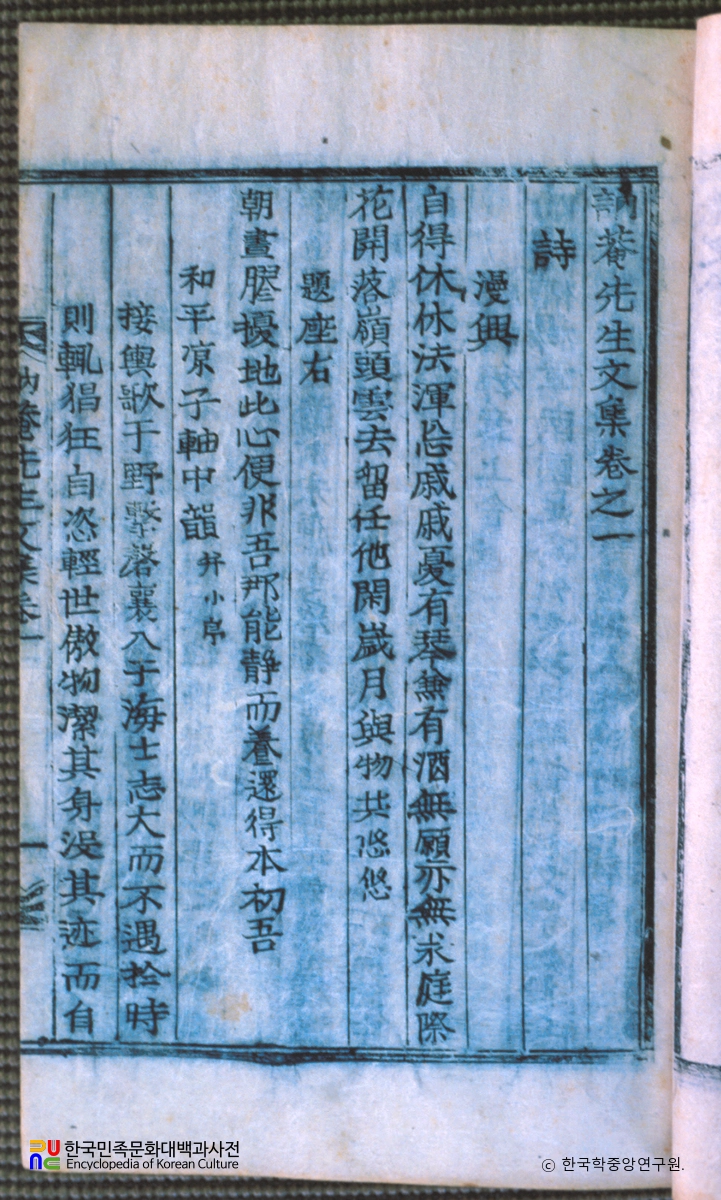 訥菴先生文集卷之一
詩
漫興
自得休休法渾忘戚戚憂有琴兼有酒無願亦無求庭際
花開落嶺頭雲去留任他閑歲月與物共悠悠
題座右
朝晝膠擾地此心便非吾那能靜而養還得本初吾
和平凉子軸中韻 幷小序
接輿歌于野擊磬襄入于海士志大而不遇於時
則輒猖狂自恣輕世傲物潔其身沒其迹而自
訥菴先生文集卷一
一
한국민족문화대백과사전
Encyclopedia of Korean Culture
ⓒ 한국학중앙연구원.